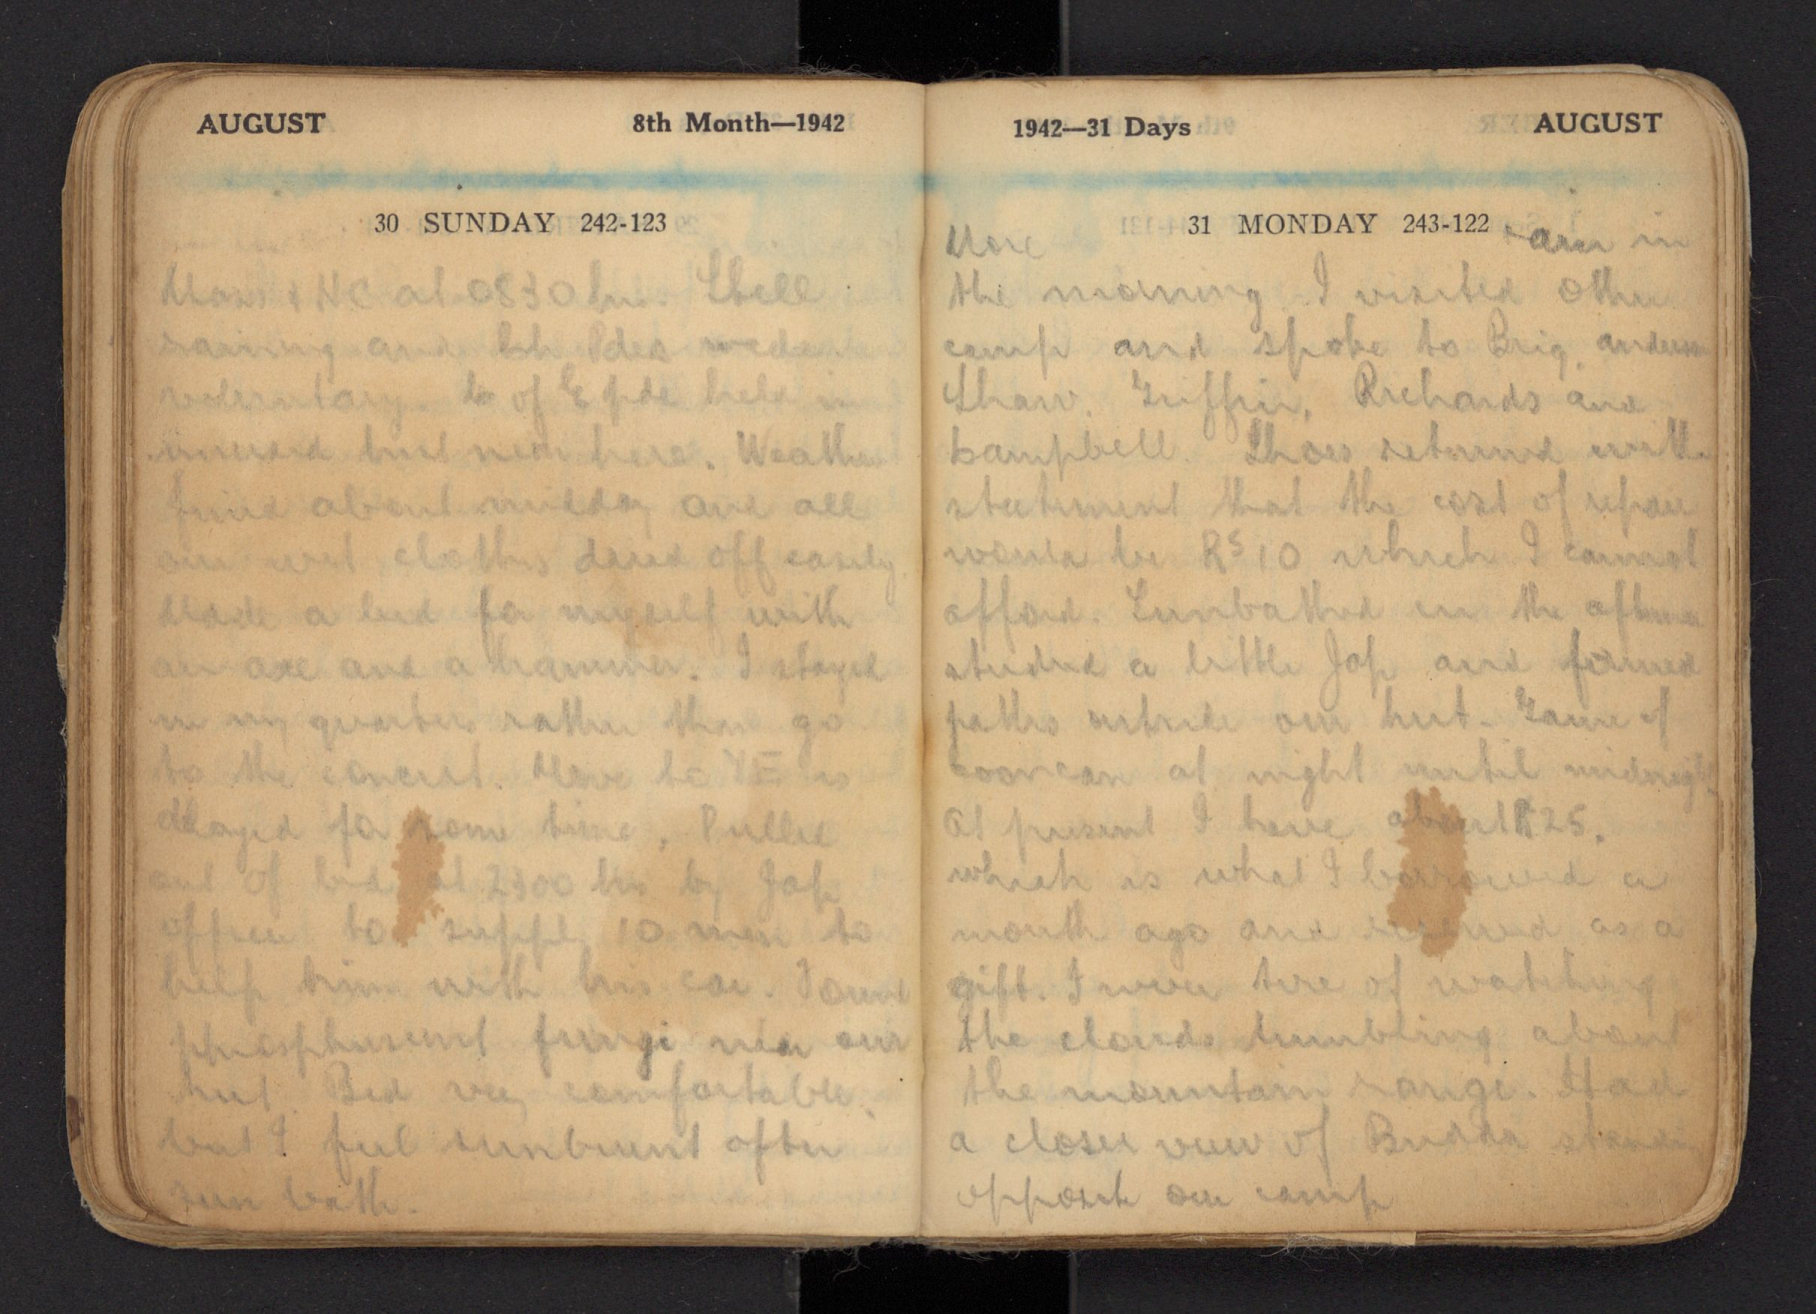 AUGUST 8th Month—1942
30 SUNDAY 242-123
Mass & HC at 0830 hrs. Still
raining and Ch Pdes made
voluntary. C of E pde held in
hut near here. Weather
fined about midday and all
our wet clothes dried off easily
Made a bed for myself with
an axe and a hammer. I stayed
in my quarters rather than go
to the concert. Move to YE is
delayed for some time. Pulled
out of bed at 2300 hrs by Jap
officer to supply 10 men to
help him with his car. Found
phosphuscent fungi near our
hut. Bed very comfortable,
but I feel sunburnt after
sun bath.
1942—31 Days AUGUST
31 MONDAY 243-122
More rain in
the morning. I visited other
camp and spoke to Brig, anderson
Shaw, Griffin, Richards and
Campbell. Shoes returned with
statement that the cost of repair
would be Rs 10 which I cannot
afford. Sunbathed in the afternoon
studied a little Jap and formed
paths outside our hut. Game of
cooncan at night until midnight
At present I have about R25.
which is what I borrowed a
month ago and received as a
gift. I never tire of watching
the clouds tumbling about
the mountain range. Had
a closer view of Budda
opposite our camp